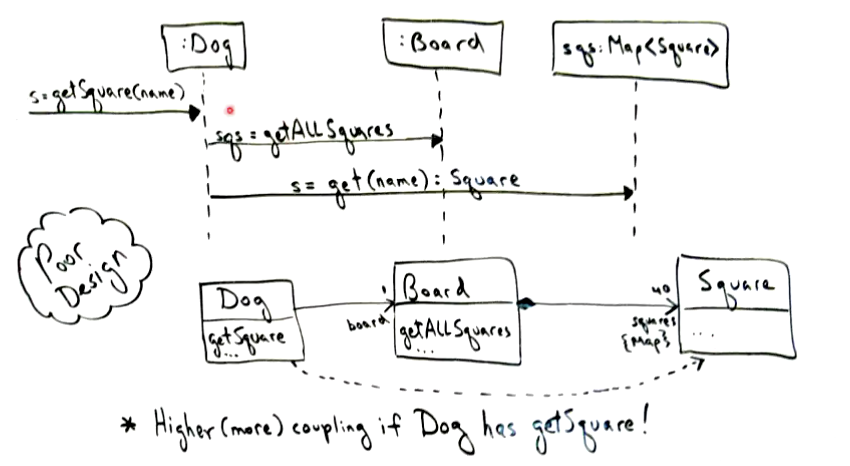 :Dog
:Board
sqs:Map<Square>
s=getSquare(name)
sqs=getALLSquares
s= get(name): Square
Poor
Design
Dog
getSquare
...
1
board
Board
getALLSquares
...
40
squares
{Map}
Square
...
* Higher (more) coupling if Dog has getSquare!